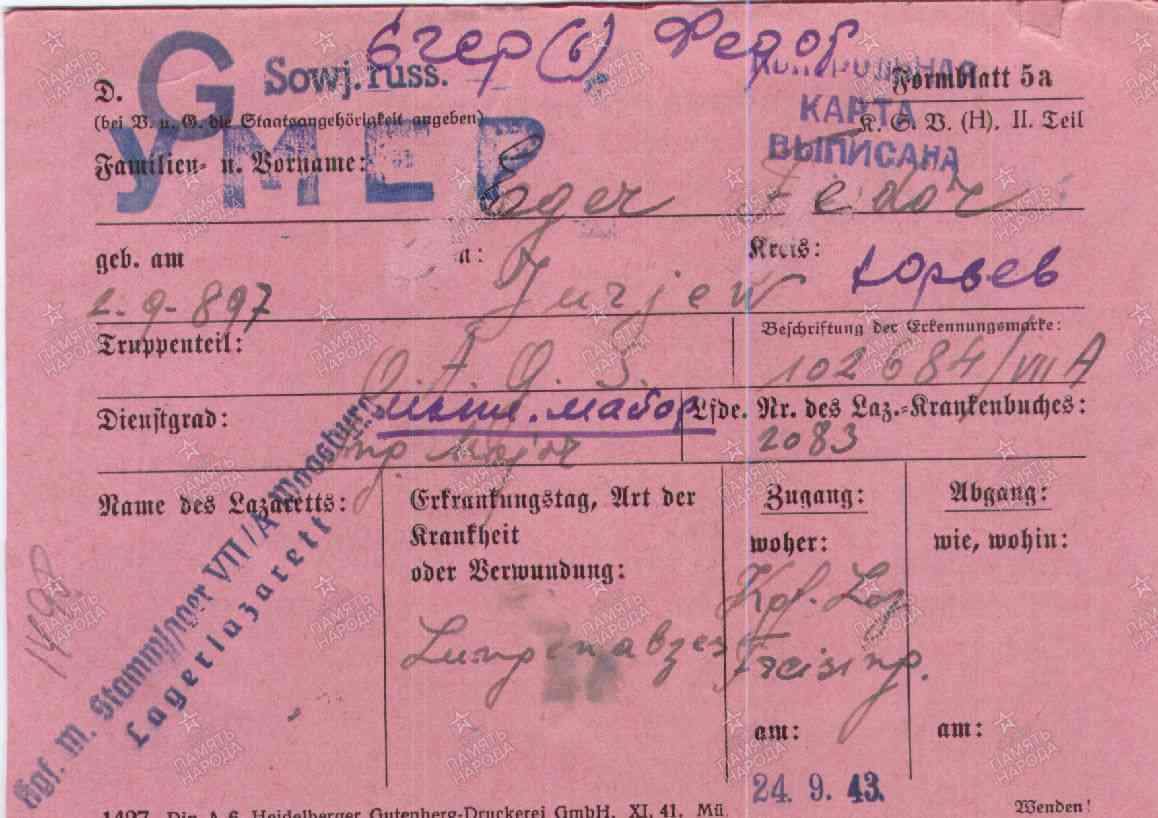 Егер (б) Федор
G Sowj. russ.
D.
Formblatt 5a
(bei V. u. G. die Staatsangehörigkeit angeben)
КАРТА
ВЫПИСАНА
K. S. V. (H). II. Teil
УМЕР
Familien- u. Vorname: Eger Fedor
geb. am 2.-9.-897 Jurjew Kreis: Юрьев
Truppenteil:
Beschriftung der Erkennungsmarke:
102684/VII A
Dienstgrad: Ing. Major
Lfde. Nr. des Laz.-Krankenbuches:
2083
Name des Lazaretts:
Kgf. M. Stammlager VII/A Moosburg
Lagerlazarett
Erkrankungstag, Art der
Krankheit
oder Verwundung:
Lungenabzes
Zugang:
woher:
Kgf. Laz
Freising.
am:
24. 9. 43.
Abgang:
wie, wohin:
am:
1497 Din A 6 Heidelberger Gutenberg-Druckerei GmbH. XI. 41. Mü
Wenden!
ПАМЯТЬ
НАРОДА